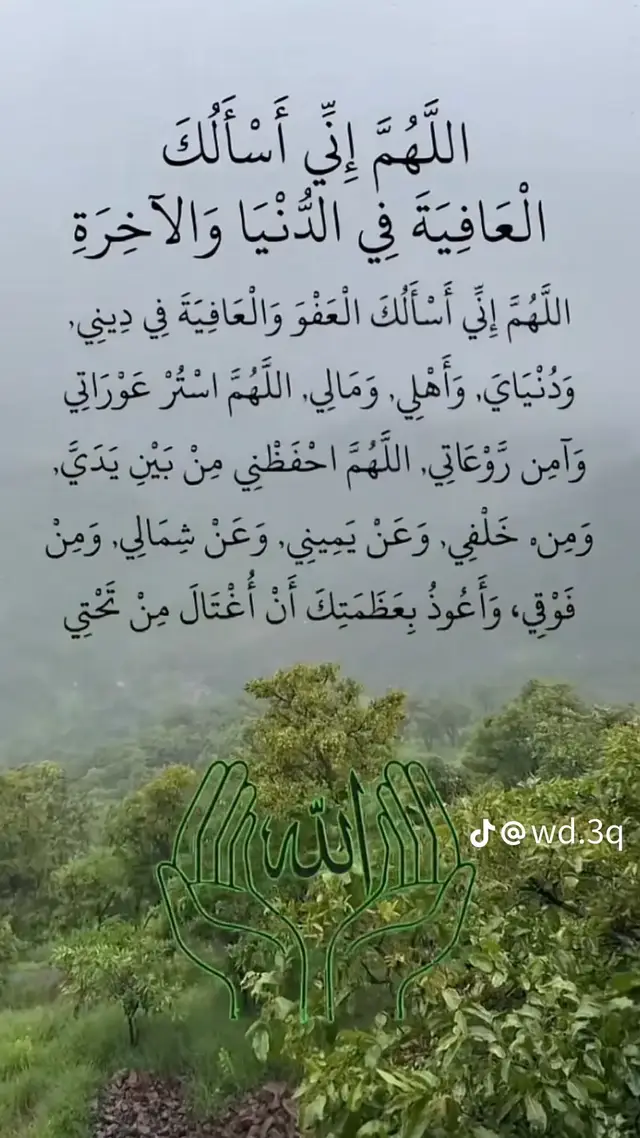 اللَّهُمَّ إِنِّي أَسْأَلُكَ
الْعَافِيَةَ فِي الدُّنْيَا وَالآخِرَةِ
اللَّهُمَّ إِنِّي أَسْأَلُكَ الْعَفْوَ وَالْعَافِيَةَ فِي دِينِي,
وَدُنْيَايَ, وَأَهْلِي, وَمَالِي, اللَّهُمَّ اسْتُرْ عَوْرَاتِي
وَآمِن رَّوْعَاتِي, اللَّهُمَّ احْفَظْنِي مِنْ بَيْنِ يَدَيَّ,
وَمِن ْ خَلْفِي, وَعَنْ يَمِينِي, وَعَنْ شِمَالِي, وَمِنْ
فَوْقِي، وَأَعُوذُ بِعَظَمَتِكَ أَنْ أُغْتَالَ مِنْ تَحْتِي
الله
@wd.3q